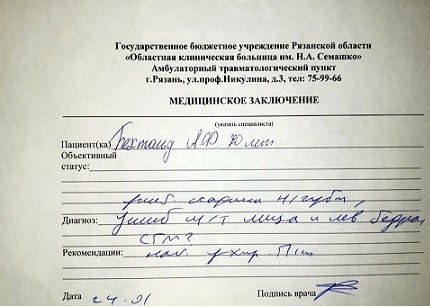 Государственное бюджетное учреждение Рязанской области
«Областная клиническая больница им. Н.А. Семашко»
Амбулаторный травматологический пункт
г.Рязань, ул.проф.Никулина, д.3, тел: 75-99-66
МЕДИЦИНСКОЕ ЗАКЛЮЧЕНИЕ
(указать специалиста)
Пациент(ка)
Объективный
статус:
н/губы,
Диагноз: Ушиб м/т лица и лев бедра
СГМ?
Рекомендации:
Дата 24.01 Подпись врача